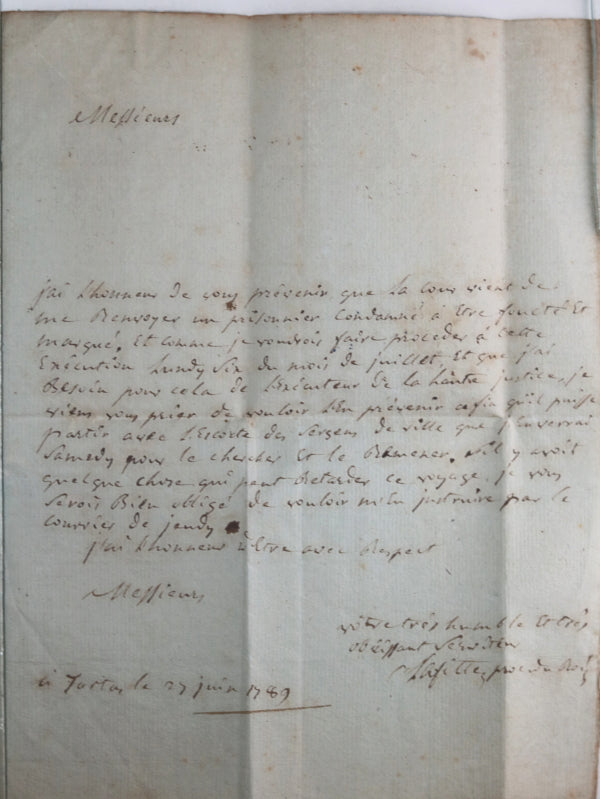 Messieurs
j'ai l'honneur de vous prévenir que la cour vient de
me Renvoyer un prisonnier Condamné à Etre foueté Et
marqué. Et comme je voudrois faire proceder à Cette
Exécution Lundy Six du mois de juillet Et que j'ai
Besoin pour cela de L'Exécuteur de la haute justice, je
viens vous prier de vouloir L'En prévenir afin qu'il puisse
partir avec L'Escorte des Sergens de ville que j'Enverrai
Samedy pour le chercher Et le Ramener. S'il y avoit
quelque chose qui peut Retarder ce voyage, je vous
Serois Bien obligé de vouloir m'En instruire par le
Courrier de jeudy
j'ai L'honneur d'Etre avec Respect
Messieurs
vôtre très humble Et très
obéissant Serviteur
Lafitte, proc du Roi
à Tartas le 27 juin 1789